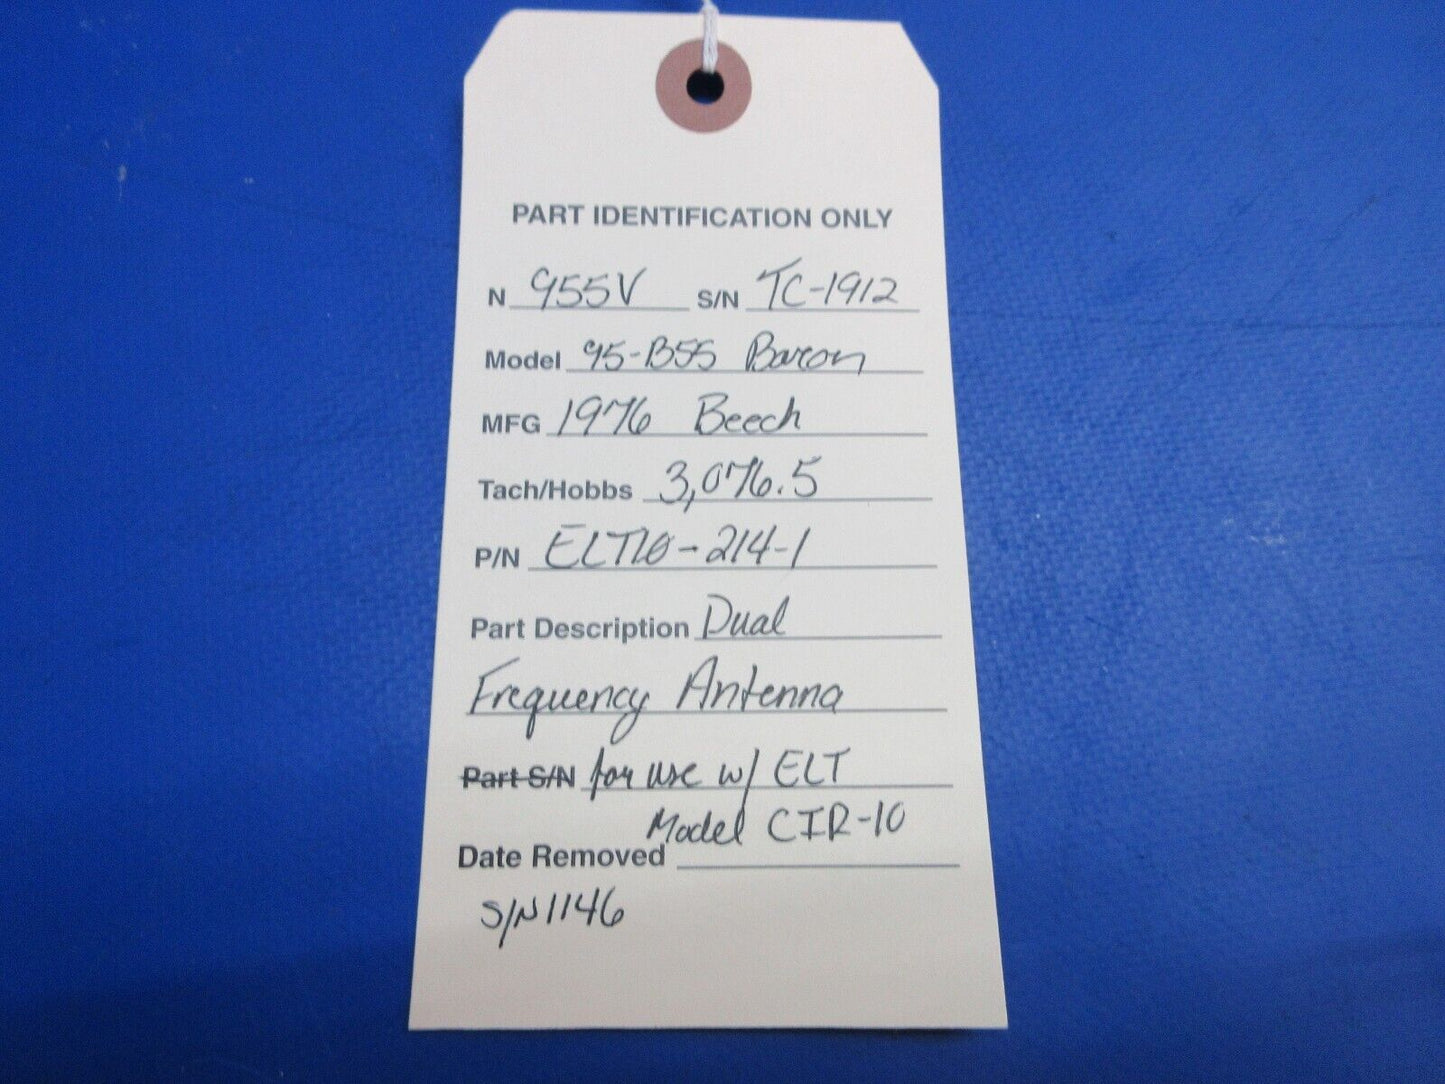 PART IDENTIFICATION ONLY
N 955V S/N TC-1912
Model 95-B55 Baron
MFG 1976 Beech
Tach/Hobbs 3,076.5
P/N ELT10-214-1
Part Description Dual
Frequency Antenna
Part S/N for use w/ ELT
Model CIR-10
Date Removed
S/N 1146